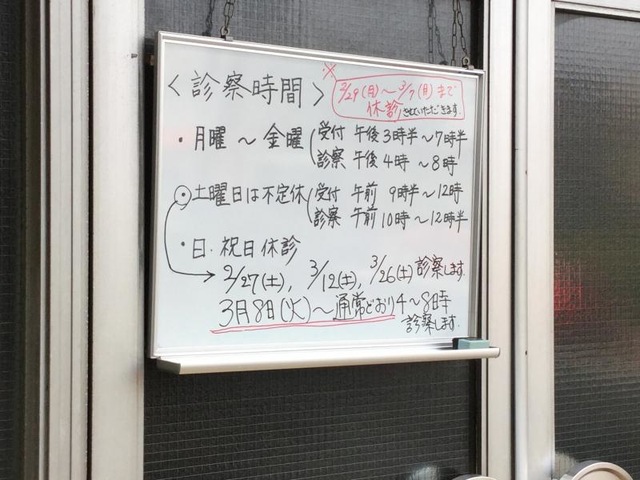 〈診察時間〉
※
2/29(月)〜3/7(月)まで
休診させていただきます.
・月曜〜金曜(受付 午後3時半〜7時半
診察 午後4時〜8時)
・土曜日は不定休(受付 午前 9時半〜12時
診察 午前10時〜12時半)
・日.祝日休診
→2/27(土), 3/12(土), 3/26(土)診察します.
3月8日(火)〜通常どおり4〜8時
診察します.